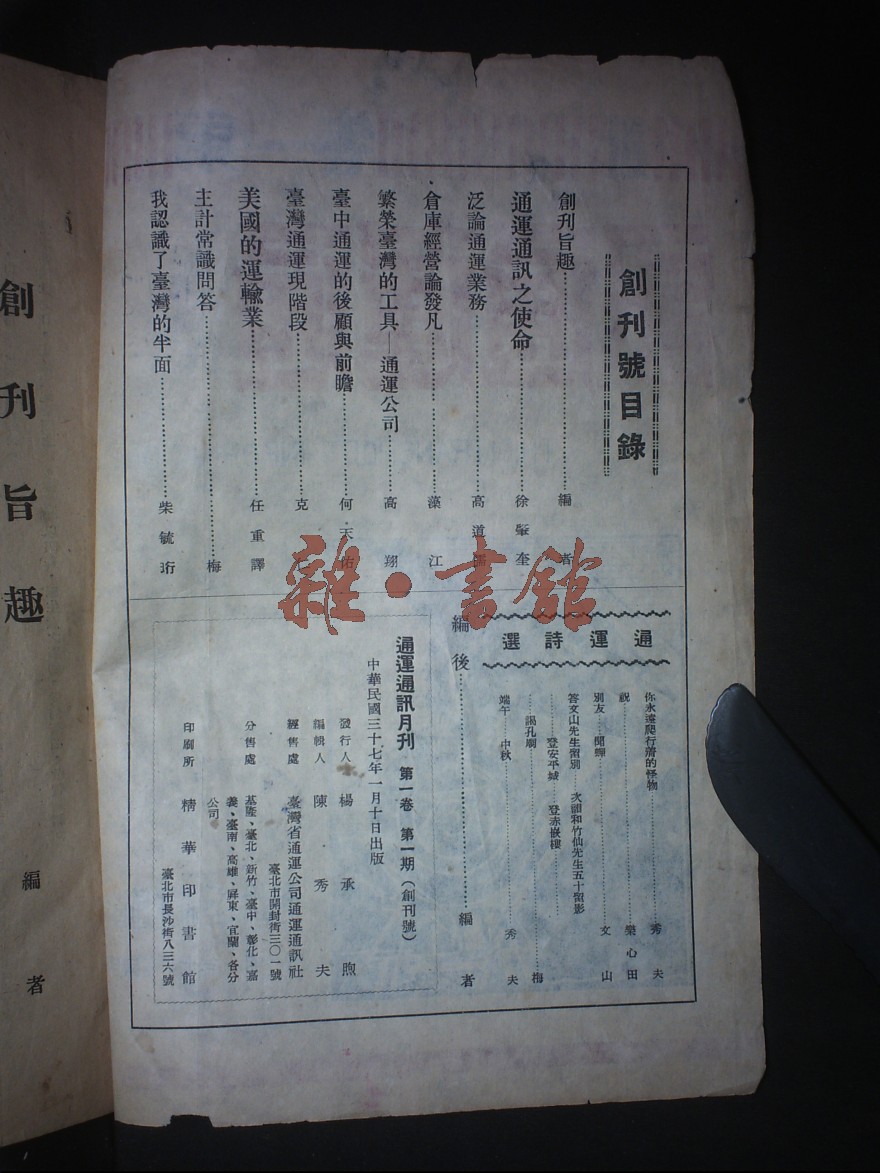 創刊號目錄
創刊旨趣……編者
通運通訊之使命……徐肇奎
泛論通運業務……高道
倉庫經營論發凡……藻江
繁榮臺灣的工具—通運公司……高翔
臺中通運的後顧與前瞻……何天佑
臺灣通運現階段……克
美國的運輸業……任重譯
主計常識問答……梅
我認識了臺灣的半面……柴毓珩
通運詩選
你永遠爬行着的怪物……秀夫
祝……樂心田
別友……聞蟬……文山
答文山先生留別……次韻和竹仙先生五十留影
登安平城……登赤嵌樓
謁孔廟……梅
端午……中秋……秀夫
編後……編者
通運通訊月刊 第一卷 第一期(創刊號)
中華民國三十七年一月十日出版
發行人 楊承煦
編輯人 陳秀夫
經售處 臺灣省通運公司通運通訊社
臺北市開封街三〇一號
分售處 基隆、臺北、新竹、臺中、彰化、嘉
義、臺南、高雄、屏東、宜蘭、各分
公司
印刷所 精華印書館
臺北市長沙街八三六號
創刊旨趣
編者
雜·書館